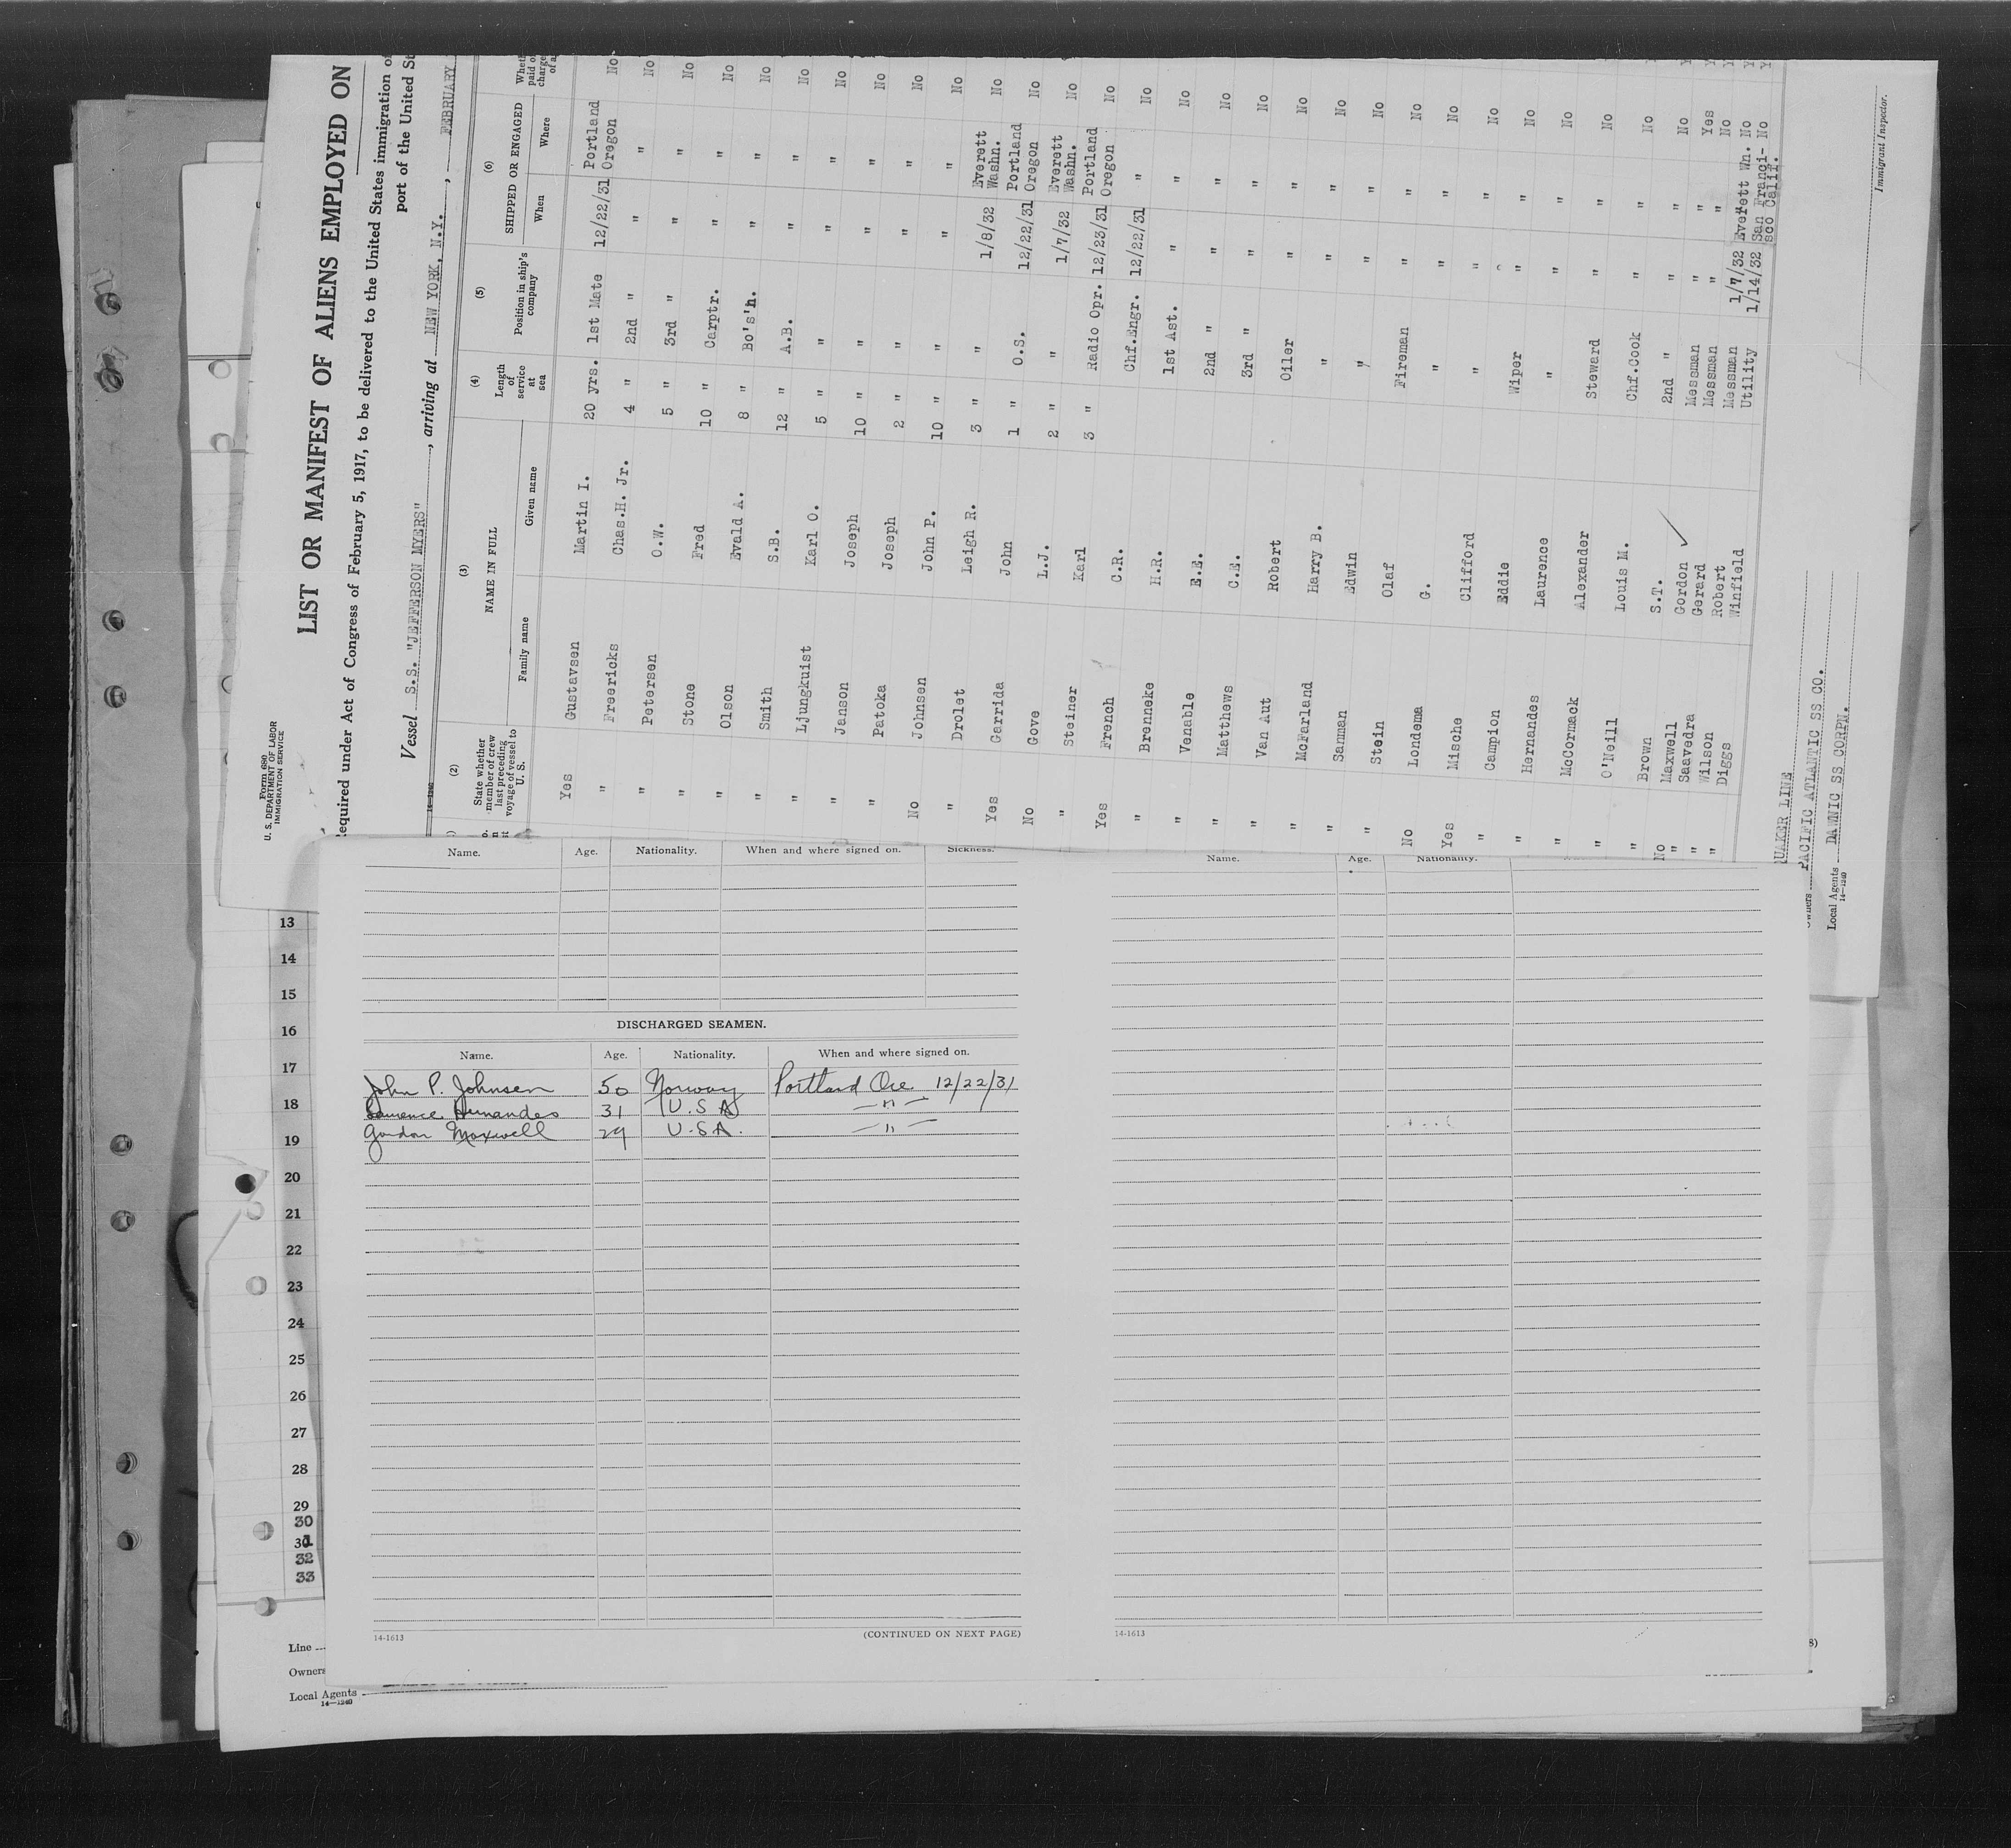 Form 680
U. S. DEPARTMENT OF LABOR
IMMIGRATION SERVICE
LIST OR MANIFEST OF ALIENS EMPLOYED ON
equired under Act of Congress of February 5, 1917, to be delivered to the United States immigration of
port of the United St
Vessel S.S. "JEFFERSON MYERS", arriving at NEW YORK, N.Y., FEBRUARY
14-1240
(2) (3) (4) (5) (6)
State whether member of crew last preceding voyage of vessel to U. S. NAME IN FULL Length of service at sea Position in ship's company SHIPPED OR ENGAGED
Family name Given name When Where
Yes Gustavsen Martin I. 20 yrs. 1st Mate 12/22/31 Portland Oregon No
" Freericks Chas.H. Jr. 4 " 2nd " " " No
" Petersen O.W. 5 " 3rd " " " No
" Stone Fred 10 " Carptr. " " No
" Olson Evald A. 8 " Bo's'n. " " No
" Smith S.B. 12 " A.B. " " No
" Ljungkuist Karl O. 5 " " " " No
" Janson Joseph 10 " " " " No
" Patoka Joseph 2 " " " " No
No Johnsen John P. 10 " " " " No
" Drolet Leigh R. 3 " " 1/8/32 Everett Washn. No
Yes Garrida John 1 " O.S. 12/22/31 Portland Oregon No
No Gove L.J. 2 " " 1/7/32 Everett Washn. No
" Steiner Karl 3 " Radio Opr. 12/23/31 Portland Oregon No
Yes French C.R. Chf.Engr. 12/22/31 " No
" Brenneke H.R. 1st Ast. " " No
" Venable E.E. 2nd " " " No
" Matthews C.E. 3rd " " " No
" Van Aut Robert Oiler " " No
" McFarland Harry B. " " " No
" Sanman Edwin " " " No
" Stein Olaf Fireman " " No
No Londema G. " " " No
Yes Mische Clifford " " " No
" Campion Eddie Wiper " " No
" Hernandes Laurence " " " No
" McCormack Alexander Steward " " No
" O'Neill Louis M. Chf.Cook " " No
" Brown S.T. 2nd " " " No
No Maxwell Gordon Messman " " Yes
" Saavedra Gerard Messman " " No
" Wilson Robert Messman 1/7/32 Everett Wn. No
" Diggs Winfield Utility 1/14/32 San Franci-sco Calif. No
UAKER LINE
wners PACIFIC ATLANTIC SS CO.
Local Agents DAWNIC SS CORPN.
14-1240
Immigrant Inspector.
Name. Age. Nationality. When and where signed on. Sickness.
Name. Age. Nationality.
DISCHARGED SEAMEN.
Name. Age. Nationality. When and where signed on.
John P. Johnsen 50 Norway Portland Ore 12/22/31
Laurence Hernandes 31 U.S.A — " —
Gordon Maxwell 29 U.S.A. — " —
14-1613 (CONTINUED ON NEXT PAGE)
14-1613
13
14
15
16
17
18
19
20
21
22
23
24
25
26
27
28
29
30
31
32
33
Line
Owners
Local Agents
14-1240
8)